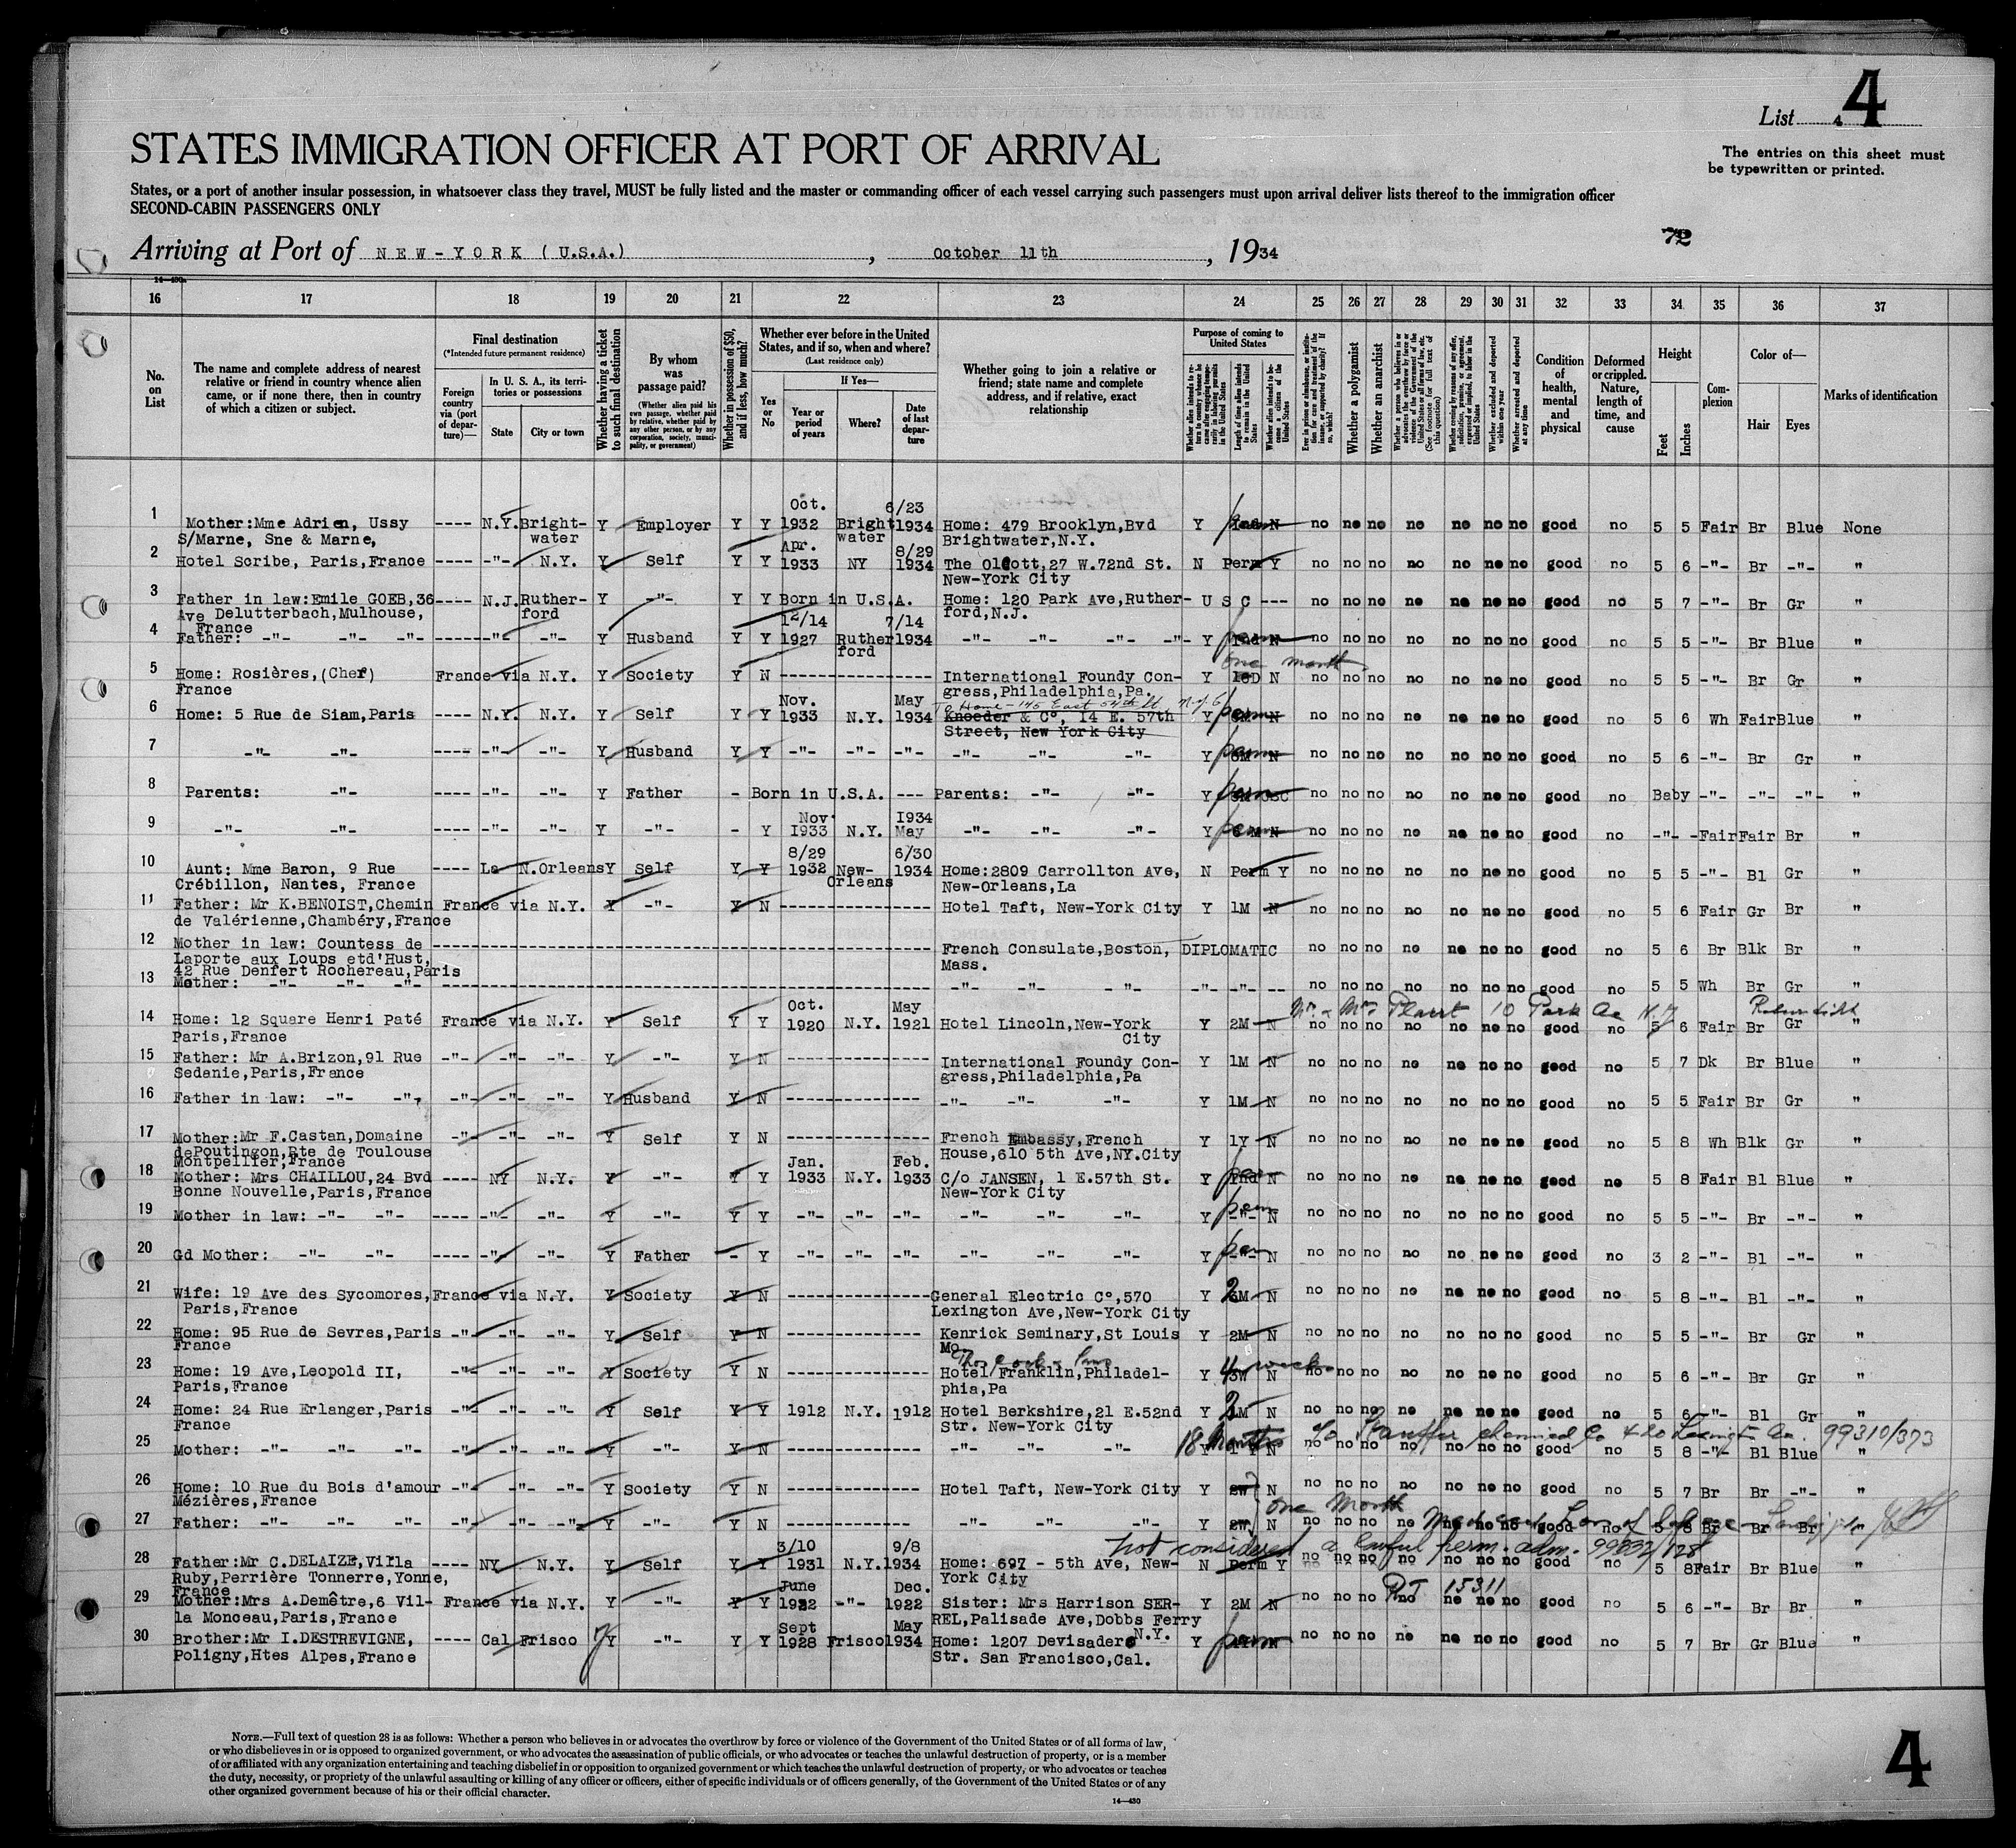 List 4 4
STATES IMMIGRATION OFFICER AT PORT OF ARRIVAL
The entries on this sheet must
be typewritten or printed.
States, or a port of another insular possession, in whatsoever class they travel, MUST be fully listed and the master or commanding officer of each vessel carrying such passengers must upon arrival deliver lists thereof to the immigration officer
SECOND-CABIN PASSENGERS ONLY
72
Arriving at Port of NEW-YORK (U.S.A.), October 11th, 1934
14—430a
16 17 18 19 20 21 22 23 24 25 26 27 28 29 30 31 32 33 34 35 36 37
No. on List
The name and complete address of nearest relative or friend in country whence alien came, or if none there, then in country of which a citizen or subject.
Final destination
(*Intended future permanent residence)
Foreign country via (port of departure)—
In U. S. A., its territories or possessions
State
City or town
Whether having a ticket to such final destination
By whom was passage paid?
(Whether alien paid his own passage, whether paid by relative, whether paid by any other person, or by any corporation, society, municipality, or government)
Whether in possession of $50, and if less, how much?
Whether ever before in the United States, and if so, when and where?
(Last residence only)
Yes or No
If Yes—
Year or period of years
Where?
Date of last departure
Whether going to join a relative or friend; state name and complete address, and if relative, exact relationship
Purpose of coming to United States
Length of time alien intends to remain in the United States
Whether alien intends to become a citizen of the United States
Whether a polygamist
Whether an anarchist
Whether excluded and deported within one year
Whether arrested and deported at any time
Condition of health, mental and physical
Deformed or crippled. Nature, length of time, and cause
Height
Feet
Inches
Complexion
Color of—
Hair
Eyes
Marks of identification
1 Mother:Mme Adrien, Ussy S/Marne, Sne & Marne, ---- N.Y. Bright-water Y Employer Y Y Oct. 1932 Bright water 6/23 1934 Home: 479 Brooklyn,Bvd Brightwater,N.Y. Y Ind N no no no no no no no good no 5 5 Fair Br Blue None
2 Hotel Scribe, Paris,France ---- -"- N.Y. Y Self Y Y Apr. 1933 NY 8/29 1934 The Olcott,27 W.72nd St. New-York City N Perm Y no no no no no no no good no 5 6 -"- Br -"- "
3 Father in law:Emile GOEB,36 Ave Delutterbach,Mulhouse, France ---- N.J. Ruther-ford Y -"- Y Y Born in U.S.A. Home: 120 Park Ave,Ruther-ford,N.J. U S C --- no no no no no no no good no 5 7 -"- Br Gr "
4 Father: -"- -"- -"- ---- -"- -"- Y Husband Y Y 12/14 1927 Ruther ford 7/14 1934 -"- -"- -"- -"- Y Ind N no no no no no no no good no 5 5 -"- Br Blue "
5 Home: Rosières,(Cher) France France via N.Y. Y Society Y N ---------------- International Foundy Con-gress,Philadelphia,Pa. Y one month N no no no no no no no good no 5 5 -"- Br Gr "
6 Home: 5 Rue de Siam,Paris ---- N.Y. N.Y. Y Self Y Y Nov. 1933 N.Y. May 1934 To Home - 145 East 54th St. N.Y.C. Knoeder & C°, 14 E. 57th Street, New York City Y perm N no no no no no no no good no 5 6 Wh Fair Blue "
7 -"- -"- ---- -"- -"- Y Husband Y Y -"- -"- -"- -"- -"- -"- Y perm 6M N no no no no no no no good no 5 6 -"- Br Gr "
8 Parents: -"- ---- -"- -"- Y Father - Born in U.S.A. --- Parents: -"- -"- Y perm USC no no no no no no no good no Baby -"- -"- -"- "
9 -"- -"- ---- -"- -"- Y -"- - Y Nov 1933 N.Y. 1934 May -"- -"- -"- Y perm 6 M N no no no no no no no good no -"- -Fair Fair Br "
10 Aunt: Mme Baron, 9 Rue Crébillon, Nantes, France ---- La N.Orleans Y Self Y Y 8/29 1932 New-Orleans 6/30 1934 Home:2809 Carrollton Ave, New-Orleans,La N Perm Y no no no no no no no good no 5 5 -"- Bl Gr "
11 Father: Mr K.BENOIST,Chemin de Valérienne,Chambéry,France France via N.Y. Y -"- Y N ---------------- Hotel Taft, New-York City Y 1M N no no no no no no no good no 5 6 Fair Gr Br "
12 Mother in law: Countess de Laporte aux Loups etd'Hust, 42 Rue Denfert Rochereau,Paris ---------------- French Consulate,Boston, Mass. DIPLOMATIC no no no no no no no good no 5 6 Br Blk Br "
13 Mother: -"- -"- -"- ---------------- -"- -"- -"- -"- -"- -- no no no no no no no good no 5 5 Wh Br Gr "
Mr & Mrs Plaut 10 Park Ave N.Y.
14 Home: 12 Square Henri Paté Paris,France France via N.Y. Y Self Y Y Oct. 1920 N.Y. May 1921 Hotel Lincoln,New-York City Y 2M N no no no no no no no good no 5 6 Fair Br Gr "
15 Father: Mr A.Brizon,91 Rue Sedanie,Paris,France -"- -"- -"- Y -"- Y N ---------------- International Foundy Con-gress,Philadelphia,Pa Y 1M N no no no no no no no good no 5 7 Dk Br Blue "
16 Father in law: -"- -"- -"- -"- -"- Y Husband Y N ---------------- -"- -"- -"- Y 1M N no no no no no no no good no 5 5 Fair Br Gr "
17 Mother:Mr F.Castan,Domaine dePoutingon,Rte de Toulouse Montpellier,France -"- -"- -"- Y Self Y N ---------------- French Embassy,French House,610 5th Ave,NY.City Y 1Y N no no no no no no no good no 5 8 Wh Blk Gr "
18 Mother: Mrs CHAILLOU,24 Bvd Bonne Nouvelle,Paris,France ---- NY N.Y. Y -"- Y Y Jan. 1933 N.Y. Feb. 1933 C/o JANSEN, 1 E.57th St. New-York City Y per Ind N no no no no no no no good no 5 8 Fair Bl Blue "
19 Mother in law: -"- -"- ---- -"- -"- Y -"- Y Y -"- -"- -"- -"- -"- -"- Y perm -"- N no no no no no no no good no 5 5 -"- Br -"- "
20 Gd Mother: -"- -"- ---- -"- -"- Y Father - Y -"- -"- -"- -"- -"- -"- Y per -"- N no no no no no no no good no 3 2 -"- Bl -"- "
21 Wife: 19 Ave des Sycomores, Paris,France France via N.Y. Y Society Y N ---------------- General Electric C°,570 Lexington Ave,New-York City Y 2 M N no no no no no no no good no 5 8 -"- Bl -"- "
22 Home: 95 Rue de Sevres,Paris France -"- -"- -"- Y Self Y N ---------------- Kenrick Seminary,St Louis Mo. Y 2M N no no no no no no no good no 5 5 -"- Br Gr "
23 Home: 19 Ave,Leopold II, Paris,France -"- -"- -"- Y Society Y N ---------------- Thos Cook & Sons Hotel Franklin,Philadel-phia,Pa Y 4 weeks 3W N no no no no no no no good no 5 6 -"- Br Gr "
24 Home: 24 Rue Erlanger,Paris France -"- -"- -"- Y Self Y Y 1912 N.Y. 1912 Hotel Berkshire,21 E.52nd Str. New-York City Y 2 M N no no no no no no no good no 5 6 -"- Bl Gr "
18 Months To Stauffer Chemical Co 420 Lexington Av. 99310/373
25 Mother: -"- -"- -"- -"- -"- -"- Y -"- Y N ---------------- -"- -"- -"- Y 1 Y N no no no no no no no good no 5 8 -"- Bl Blue "
26 Home: 10 Rue du Bois d'amour Mézières,France -"- -"- -"- Y Society Y N ---------------- Hotel Taft, New-York City Y 2W N no no no no no no no good no 5 7 Br Br -"- "
one month
27 Father: -"- -"- -"- -"- -"- -"- Y -"- Y N ---------------- -"- -"- -"- Y 2W N no no no no no no no good no 5 8 Br Br Br "
not considered a lawful perm. adm. 99832/128
28 Father:Mr C.DELAIZE,Villa Ruby,Perrière Tonnerre,Yonne, France ---- NY N.Y. Y Self Y Y 3/10 1931 N.Y. 9/8 1934 Home: 697 - 5th Ave, New-York City N Perm Y no no no no no no no good no 5 8 Fair Br Blue "
29 Mother:Mrs A.Demêtre,6 Vil-la Monceau,Paris,France France via N.Y. Y -"- Y Y June 1922 -"- Dec. 1922 Sister: Mrs Harrison SER-REL,Palisade Ave,Dobbs Ferry N.Y. Y 2M N no no no no no no no good no 5 6 -"- Br Br "
15311
30 Brother:Mr I.DESTREVIGNE, Poligny,Htes Alpes,France ---- Cal Frisco Y -"- Y Y Sept 1928 Frisco May 1934 Home: 1207 Devisadero Str. San Francisco,Cal. Y perm N no no no no no no no good no 5 7 Br Gr Blue "
NOTE.—Full text of question 28 is as follows: Whether a person who believes in or advocates the overthrow by force or violence of the Government of the United States or of all forms of law,
or who disbelieves in or is opposed to organized government, or who advocates the assassination of public officials, or who advocates or teaches the unlawful destruction of property, or is a member
of or affiliated with any organization entertaining and teaching disbelief in or opposition to organized government or which teaches the unlawful destruction of property, or who advocates or teaches
the duty, necessity, or propriety of the unlawful assaulting or killing of any officer or officers, either of specific individuals or of officers generally, of the Government of the United States or of any
other organized government because of his or their official character.
14—430
4